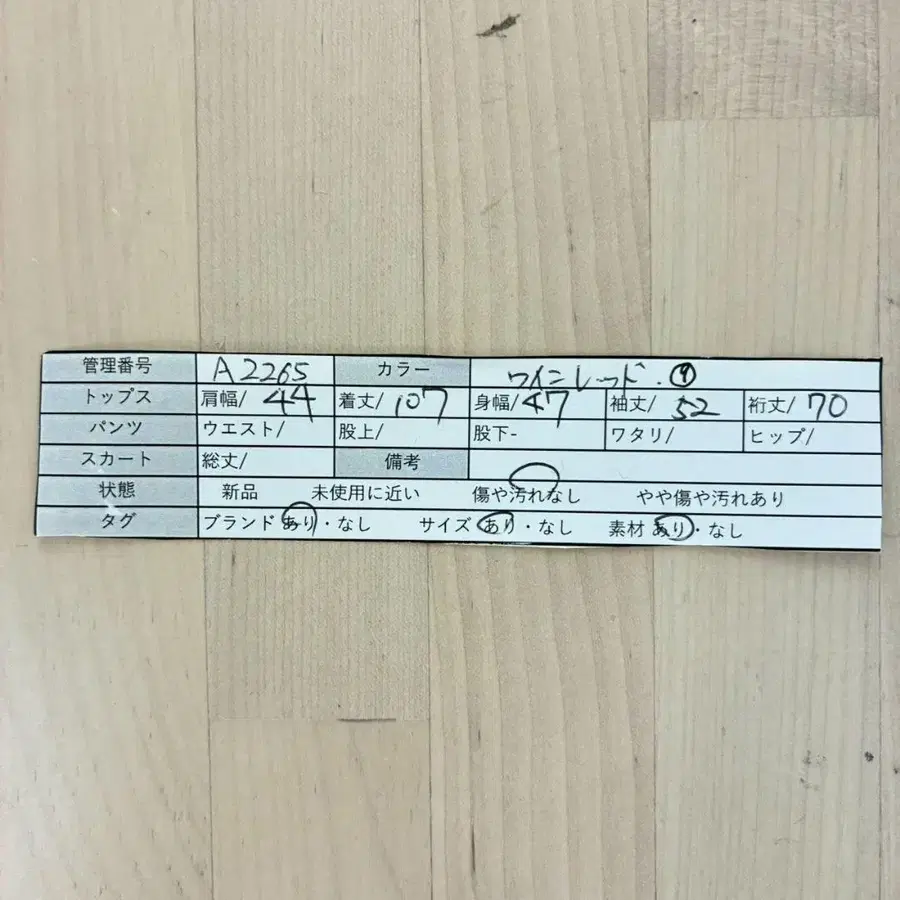 管理番号 A2265 カラー ワインレッド.④
トップス 肩幅/ 44 着丈/ 107 身幅/ 47 袖丈/ 52 裄丈/ 70
パンツ ウエスト/ 股上/ 股下- ワタリ/ ヒップ/
スカート 総丈/ 備考
状態 新品 未使用に近い 傷や汚れなし やや傷や汚れあり
タグ ブランド あり・なし サイズ あり・なし 素材 あり・なし